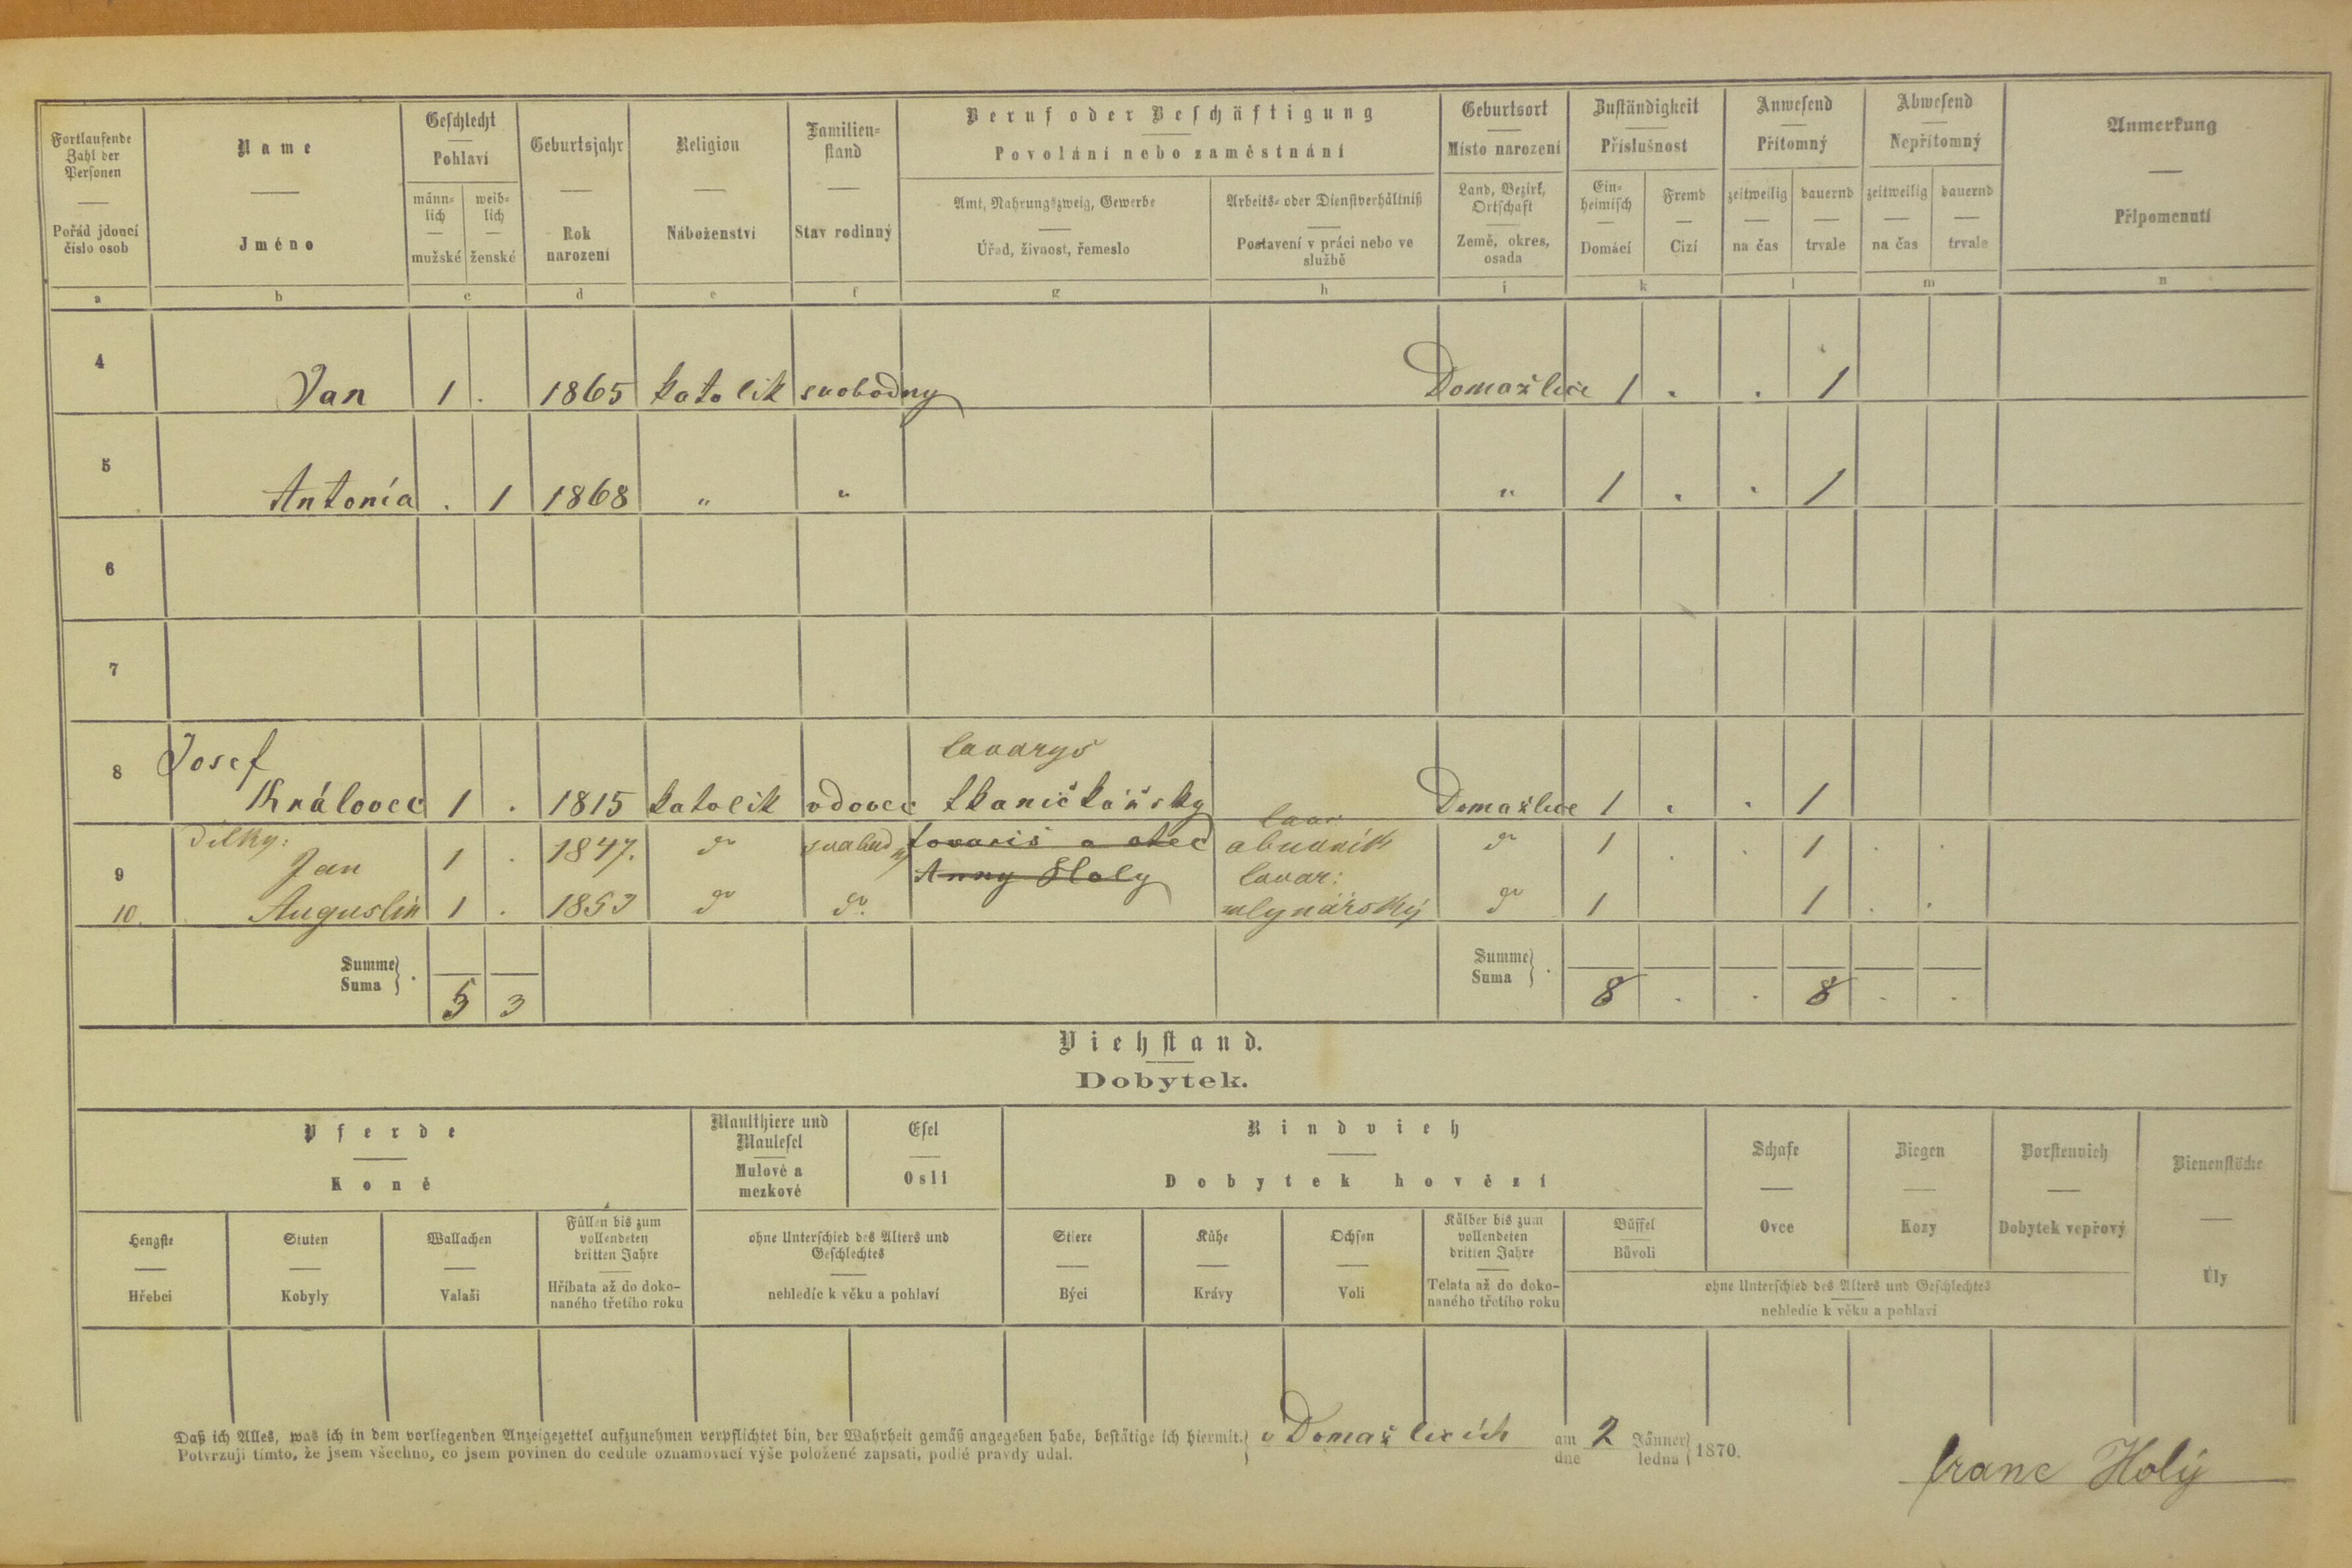 Fortlaufende Zahl der Personen
Pořád jdoucí číslo osob
Name
Jméno
Geschlecht
Pohlaví
männ-lich
mužské
weib-lich
ženské
Geburtsjahr
Rok narození
Religion
Náboženství
Familien-stand
Stav rodinný
Beruf oder Beschäftigung
Povolání nebo zaměstnání
Amt, Nahrungszweig, Gewerbe
Úřad, živnost, řemeslo
Arbeits- oder Dienstverhältniß
Postavení v práci nebo ve službě
Geburtsort
Místo narození
Land, Bezirk, Ortschaft
Země, okres, osada
Zuständigkeit
Příslušnost
Ein-heimisch
Domácí
Fremd
Cizí
Anwesend
Přítomný
zeitweilig
na čas
dauernd
trvale
Abwesend
Nepřítomný
zeitweilig
na čas
dauernd
trvale
Anmerkung
Připomenutí
a b c d e f g h i k l m n
4 Jan 1 . 1865 katolik svobodny Domažlice 1 . . 1
5 Antonía . 1 1868 " " " 1 . . 1
6
7
8 Josef
Královec 1 . 1815 katolik vdovec tovaryš
tkaničkářsky Domažlice 1 . . 1
dítky:
9 Jan 1 . 1847. dto svobodný tovariš a otec
Anny Holy tovar:
obuvník dto 1 . . 1 . .
10. Augustin 1 . 1853 dto dto tovar:
mlynářský dto 1 1 . .
Summe
Suma } . 5 3
Summe
Suma } . 8 . . 8 . .
Viehstand.
Dobytek.
Pferde
Koně
Hengste
Hřebci
Stuten
Kobyly
Wallachen
Valaši
Füllen bis zum vollendeten dritten Jahre
Hříbata až do doko-naného třetího roku
Maulthiere und Maulesel
Mulové a mezkové
Esel
Osli
ohne Unterschied des Alters und Geschlechtes
nehledíc k věku a pohlaví
Rindvieh
Dobytek hovězí
Stiere
Býci
Kühe
Krávy
Ochsen
Voli
Kälber bis zum vollendeten dritten Jahre
Telata až do doko-naného třetího roku
Büffel
Bůvoli
Schafe
Ovce
Ziegen
Kozy
Borstenvieh
Dobytek vepřový
ohne Unterschied des Alters und Geschlechtes
nehledíc k věku a pohlaví
Bienenstöcke
Úly
Daß ich Alles, was ich in dem vorliegenden Anzeigezettel aufzunehmen verpflichtet bin, der Wahrheit gemäß angegeben habe, bestätige ich hiermit.
Potvrzuji tímto, že jsem všechno, co jsem povinen do cedule oznamovací výše položené zapsati, podlé pravdy udal.
v Domažlicích am dne 2 Jänner ledna 1870.
franc Holý